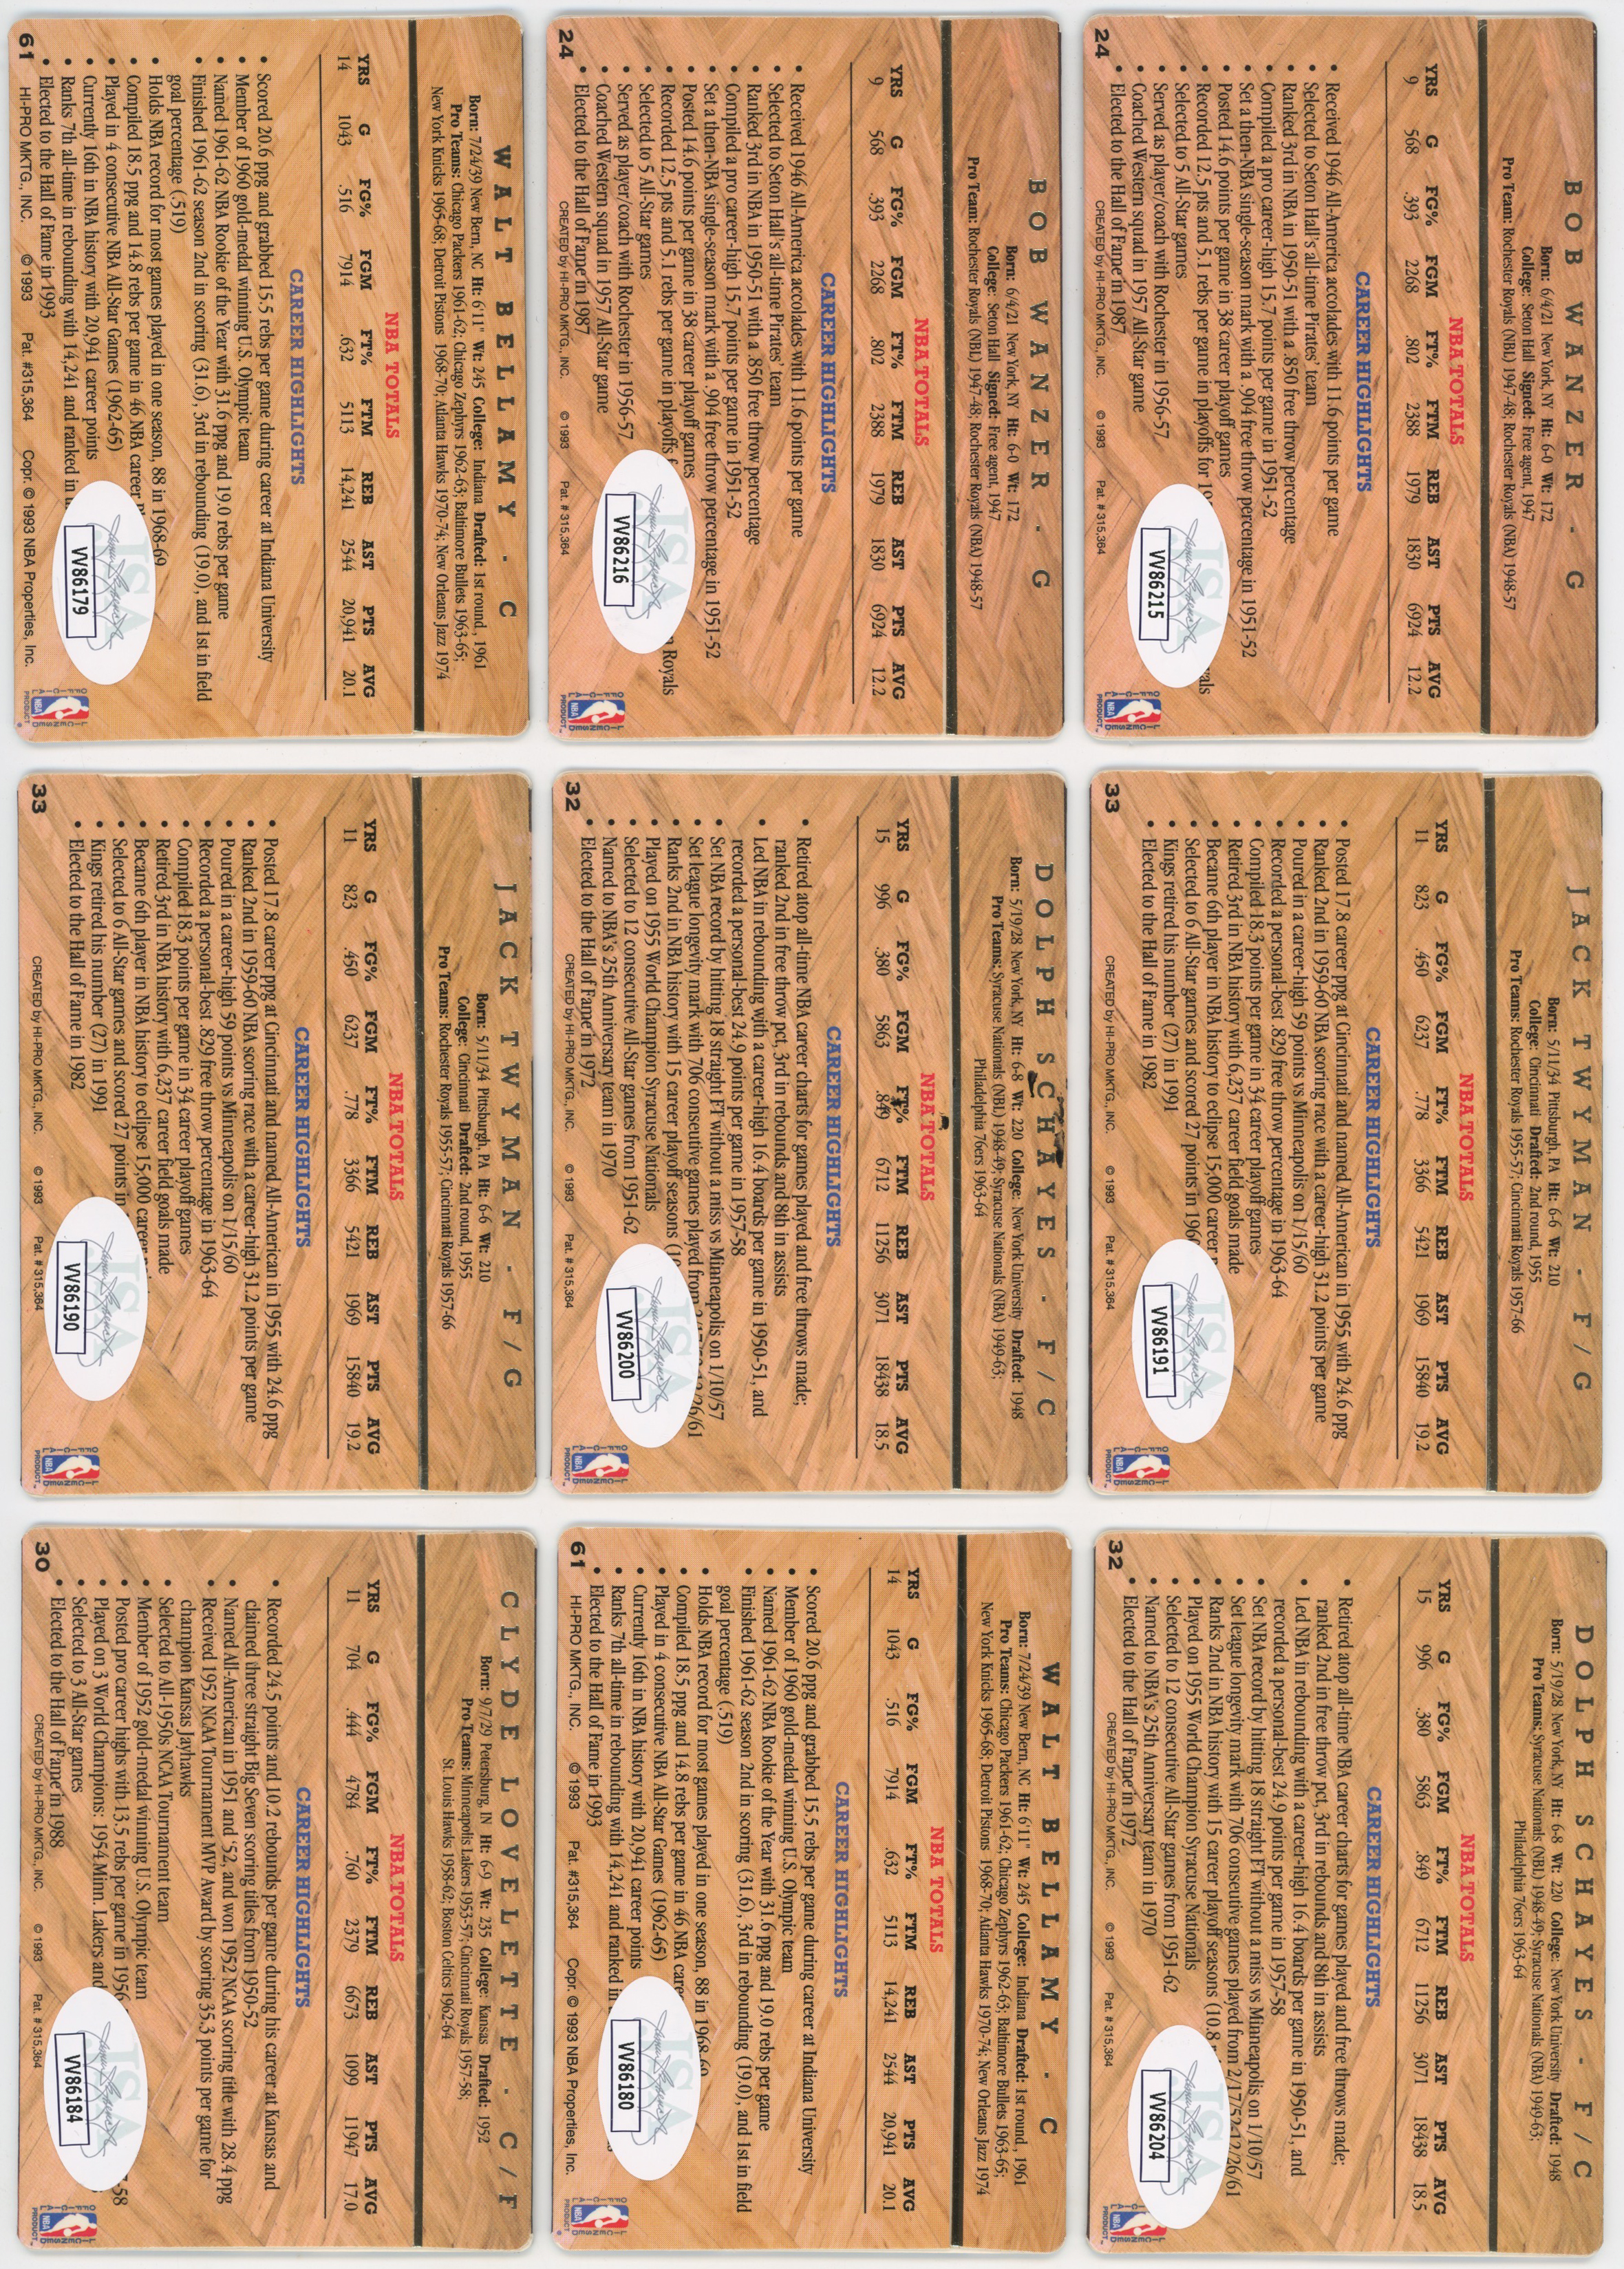 BOB WANZER - G
Born: 6/4/21 New York, NY Ht: 6-0 Wt: 172
College: Seton Hall Signed: Free agent, 1947
Pro Team: Rochester Royals (NBL) 1947-48; Rochester Royals (NBA) 1948-57
NBA TOTALS
YRS G FG% FGM FT% FTM REB AST PTS AVG
9 568 .393 2268 .802 2388 1979 1830 6924 12.2
CAREER HIGHLIGHTS
• Received 1946 All-America accolades with 11.6 points per game
• Selected to Seton Hall's all-time Pirates' team
• Ranked 3rd in NBA in 1950-51 with a .850 free throw percentage
• Compiled a pro career-high 15.7 points per game in 1951-52
• Set a then-NBA single-season mark with a .904 free throw percentage in 1951-52
• Posted 14.6 points per game in 38 career playoff games
• Recorded 12.5 pts and 5.1 rebs per game in playoffs for
• Selected to 5 All-Star games
• Served as player/coach with Rochester in 1956-57
• Coached Western squad in 1957 All-Star game
• Elected to the Hall of Fame in 1987
24 CREATED by HI-PRO MKTG., INC. © 1993 Pat. # 315,364
VV86215
JACK TWYMAN - F/G
Born: 5/11/34 Pittsburgh, PA Ht: 6-6 Wt: 210
College: Cincinnati Drafted: 2nd round, 1955
Pro Teams: Rochester Royals 1955-57; Cincinnati Royals 1957-66
NBA TOTALS
YRS G FG% FGM FT% FTM REB AST PTS AVG
11 823 .450 6237 .778 3366 5421 1969 15840 19.2
CAREER HIGHLIGHTS
• Posted 17.8 career ppg at Cincinnati and named All-American in 1955 with 24.6 ppg
• Ranked 2nd in 1959-60 NBA scoring race with a career-high 31.2 points per game
• Poured in a career-high 59 points vs Minneapolis on 1/15/60
• Recorded a personal-best .829 free throw percentage in 1963-64
• Compiled 18.3 points per game in 34 career playoff games
• Retired 3rd in NBA history with 6,237 career field goals made
• Became 6th player in NBA history to eclipse 15,000 career
• Selected to 6 All-Star games and scored 27 points in
• Kings retired his number (27) in 1991
• Elected to the Hall of Fame in 1982
33 CREATED by HI-PRO MKTG., INC. © 1993 Pat. # 315,364
VV86191
DOLPH SCHAYES - F/C
Born: 5/19/28 New York, NY Ht: 6-8 Wt: 220 College: New York University Drafted: 1948
Pro Teams: Syracuse Nationals (NBL) 1948-49; Syracuse Nationals (NBA) 1949-63;
Philadelphia 76ers 1963-64
NBA TOTALS
YRS G FG% FGM FT% FTM REB AST PTS AVG
15 996 .380 5863 .849 6712 11256 3071 18438 18.5
CAREER HIGHLIGHTS
• Retired atop all-time NBA career charts for games played and free throws made;
ranked 2nd in free throw pct, 3rd in rebounds and 8th in assists
• Led NBA in rebounding with a career-high 16.4 boards per game in 1950-51, and
recorded a personal-best 24.9 points per game in 1957-58
• Set NBA record by hitting 18 straight FT without a miss vs Minneapolis on 1/10/57
• Set league longevity mark with 706 consecutive games played from 2/17/52-12/26/61
• Ranks 2nd in NBA history with 15 career playoff seasons (10.8
• Played on 1955 World Champion Syracuse Nationals
• Selected to 12 consecutive All-Star games from 1951-62
• Named to NBA's 25th Anniversary team in 1970
• Elected to the Hall of Fame in 1972
32 CREATED by HI-PRO MKTG., INC. © 1993 Pat. # 315,364
VV86204
BOB WANZER - G
Born: 6/4/21 New York, NY Ht: 6-0 Wt: 172
College: Seton Hall Signed: Free agent, 1947
Pro Team: Rochester Royals (NBL) 1947-48; Rochester Royals (NBA) 1948-57
NBA TOTALS
YRS G FG% FGM FT% FTM REB AST PTS AVG
9 568 .393 2268 .802 2388 1979 1830 6924 12.2
CAREER HIGHLIGHTS
• Received 1946 All-America accolades with 11.6 points per game
• Selected to Seton Hall's all-time Pirates' team
• Ranked 3rd in NBA in 1950-51 with a .850 free throw percentage
• Compiled a pro career-high 15.7 points per game in 1951-52
• Set a then-NBA single-season mark with a .904 free throw percentage in 1951-52
• Posted 14.6 points per game in 38 career playoff games
• Recorded 12.5 pts and 5.1 rebs per game in playoffs Royals
• Selected to 5 All-Star games
• Served as player/coach with Rochester in 1956-57
• Coached Western squad in 1957 All-Star game
• Elected to the Hall of Fame in 1987
24 CREATED by HI-PRO MKTG., INC. © 1993 Pat. # 315,364
VV86216
DOLPH SCHAYES - F/C
Born: 5/19/28 New York, NY Ht: 6-8 Wt: 220 College: New York University Drafted: 1948
Pro Teams: Syracuse Nationals (NBL) 1948-49; Syracuse Nationals (NBA) 1949-63;
Philadelphia 76ers 1963-64
NBA TOTALS
YRS G FG% FGM FT% FTM REB AST PTS AVG
15 996 .380 5863 .849 6712 11256 3071 18438 18.5
CAREER HIGHLIGHTS
• Retired atop all-time NBA career charts for games played and free throws made;
ranked 2nd in free throw pct, 3rd in rebounds and 8th in assists
• Led NBA in rebounding with a career-high 16.4 boards per game in 1950-51, and
recorded a personal-best 24.9 points per game in 1957-58
• Set NBA record by hitting 18 straight FT without a miss vs Minneapolis on 1/10/57
• Set league longevity mark with 706 consecutive games played from
• Ranks 2nd in NBA history with 15 career playoff seasons
• Played on 1955 World Champion Syracuse Nationals
• Selected to 12 consecutive All-Star games from 1951-62
• Named to NBA's 25th Anniversary team in 1970
• Elected to the Hall of Fame in 1972
32 CREATED by HI-PRO MKTG., INC. © 1993 Pat. # 315,364
VV86200
WALT BELLAMY - C
Born: 7/24/39 New Bern, NC Ht: 6'11" Wt: 245 College: Indiana Drafted: 1st round, 1961
Pro Teams: Chicago Packers 1961-62; Chicago Zephyrs 1962-63; Baltimore Bullets 1963-65;
New York Knicks 1965-68; Detroit Pistons 1968-70; Atlanta Hawks 1970-74; New Orleans Jazz 1974
NBA TOTALS
YRS G FG% FGM FT% FTM REB AST PTS AVG
14 1043 .516 7914 .632 5113 14,241 2544 20,941 20.1
CAREER HIGHLIGHTS
• Scored 20.6 ppg and grabbed 15.5 rebs per game during career at Indiana University
• Member of 1960 gold-medal winning U.S. Olympic team
• Named 1961-62 NBA Rookie of the Year with 31.6 ppg and 19.0 rebs per game
• Finished 1961-62 season 2nd in scoring (31.6), 3rd in rebounding (19.0), and 1st in field
goal percentage (.519)
• Holds NBA record for most games played in one season, 88 in 1968-69
• Compiled 18.5 ppg and 14.8 rebs per game in 46 NBA
• Played in 4 consecutive NBA All-Star Games (1962-65)
• Currently 16th in NBA history with 20,941 career points
• Ranks 7th all-time in rebounding with 14,241 and ranked in
• Elected to the Hall of Fame in 1993
61 HI-PRO MKTG., INC. © 1993 Pat. #315,364 Copr. © 1993 NBA Properties, Inc.
VV86180
WALT BELLAMY - C
Born: 7/24/39 New Bern, NC Ht: 6'11" Wt: 245 College: Indiana Drafted: 1st round, 1961
Pro Teams: Chicago Packers 1961-62; Chicago Zephyrs 1962-63; Baltimore Bullets 1963-65;
New York Knicks 1965-68; Detroit Pistons 1968-70; Atlanta Hawks 1970-74; New Orleans Jazz 1974
NBA TOTALS
YRS G FG% FGM FT% FTM REB AST PTS AVG
14 1043 .516 7914 .632 5113 14,241 2544 20,941 20.1
CAREER HIGHLIGHTS
• Scored 20.6 ppg and grabbed 15.5 rebs per game during career at Indiana University
• Member of 1960 gold-medal winning U.S. Olympic team
• Named 1961-62 NBA Rookie of the Year with 31.6 ppg and 19.0 rebs per game
• Finished 1961-62 season 2nd in scoring (31.6), 3rd in rebounding (19.0), and 1st in field
goal percentage (.519)
• Holds NBA record for most games played in one season, 88 in 1968-69
• Compiled 18.5 ppg and 14.8 rebs per game in 46 NBA career
• Played in 4 consecutive NBA All-Star Games (1962-65)
• Currently 16th in NBA history with 20,941 career points
• Ranks 7th all-time in rebounding with 14,241 and ranked in
• Elected to the Hall of Fame in 1993
61 HI-PRO MKTG., INC. © 1993 Pat. #315,364 Copr. © 1993 NBA Properties, Inc.
VV86179
JACK TWYMAN - F/G
Born: 5/11/34 Pittsburgh, PA Ht: 6-6 Wt: 210
College: Cincinnati Drafted: 2nd round, 1955
Pro Teams: Rochester Royals 1955-57; Cincinnati Royals 1957-66
NBA TOTALS
YRS G FG% FGM FT% FTM REB AST PTS AVG
11 823 .450 6237 .778 3366 5421 1969 15840 19.2
CAREER HIGHLIGHTS
• Posted 17.8 career ppg at Cincinnati and named All-American in 1955 with 24.6 ppg
• Ranked 2nd in 1959-60 NBA scoring race with a career-high 31.2 points per game
• Poured in a career-high 59 points vs Minneapolis on 1/15/60
• Recorded a personal-best .829 free throw percentage in 1963-64
• Compiled 18.3 points per game in 34 career playoff games
• Retired 3rd in NBA history with 6,237 career field goals made
• Became 6th player in NBA history to eclipse 15,000 career
• Selected to 6 All-Star games and scored 27 points in
• Kings retired his number (27) in 1991
• Elected to the Hall of Fame in 1982
33 CREATED by HI-PRO MKTG., INC. © 1993 Pat. # 315,364
VV86190
CLYDE LOVELLETTE - C/F
Born: 9/7/29 Petersburg, IN Ht: 6-9 Wt: 235 College: Kansas Drafted: 1952
Pro Teams: Minneapolis Lakers 1953-57; Cincinnati Royals 1957-58;
St. Louis Hawks 1958-62; Boston Celtics 1962-64
NBA TOTALS
YRS G FG% FGM FT% FTM REB AST PTS AVG
11 704 .444 4784 .760 2379 6673 1099 11947 17.0
CAREER HIGHLIGHTS
• Recorded 24.5 points and 10.2 rebounds per game during his career at Kansas and
claimed three straight Big Seven scoring titles from 1950-52
• Named All-American in 1951 and '52, and won 1952 NCAA scoring title with 28.4 ppg
• Received 1952 NCAA Tournament MVP Award by scoring 35.3 points per game for
champion Kansas Jayhawks
• Selected to All-1950s NCAA Tournament team
• Member of 1952 gold-medal winning U.S. Olympic team
• Posted pro career highs with 13.5 rebs per game in 1956 -58
• Played on 3 World Champions: 1954 Minn. Lakers and
• Selected to 3 All-Star games
• Elected to the Hall of Fame in 1988
30 CREATED by HI-PRO MKTG., INC. © 1993 Pat. # 315,364
VV86184